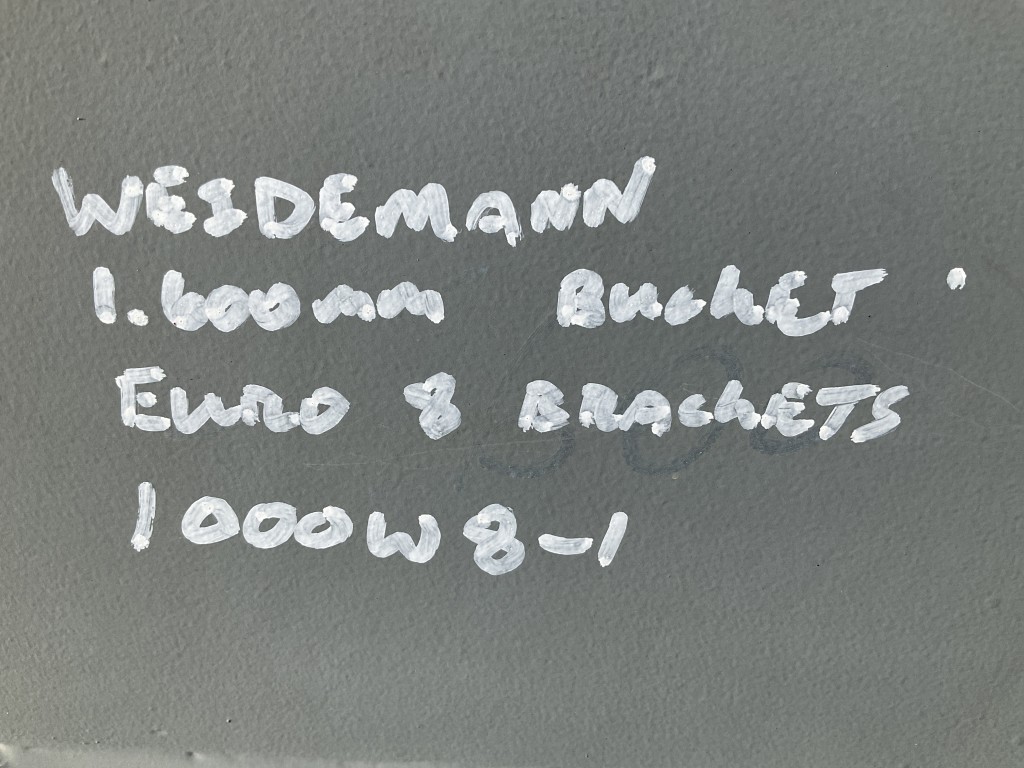 WEIDEMANN
1.600mm BucKET
Euro 8 BRAcKETS
1000W8-1